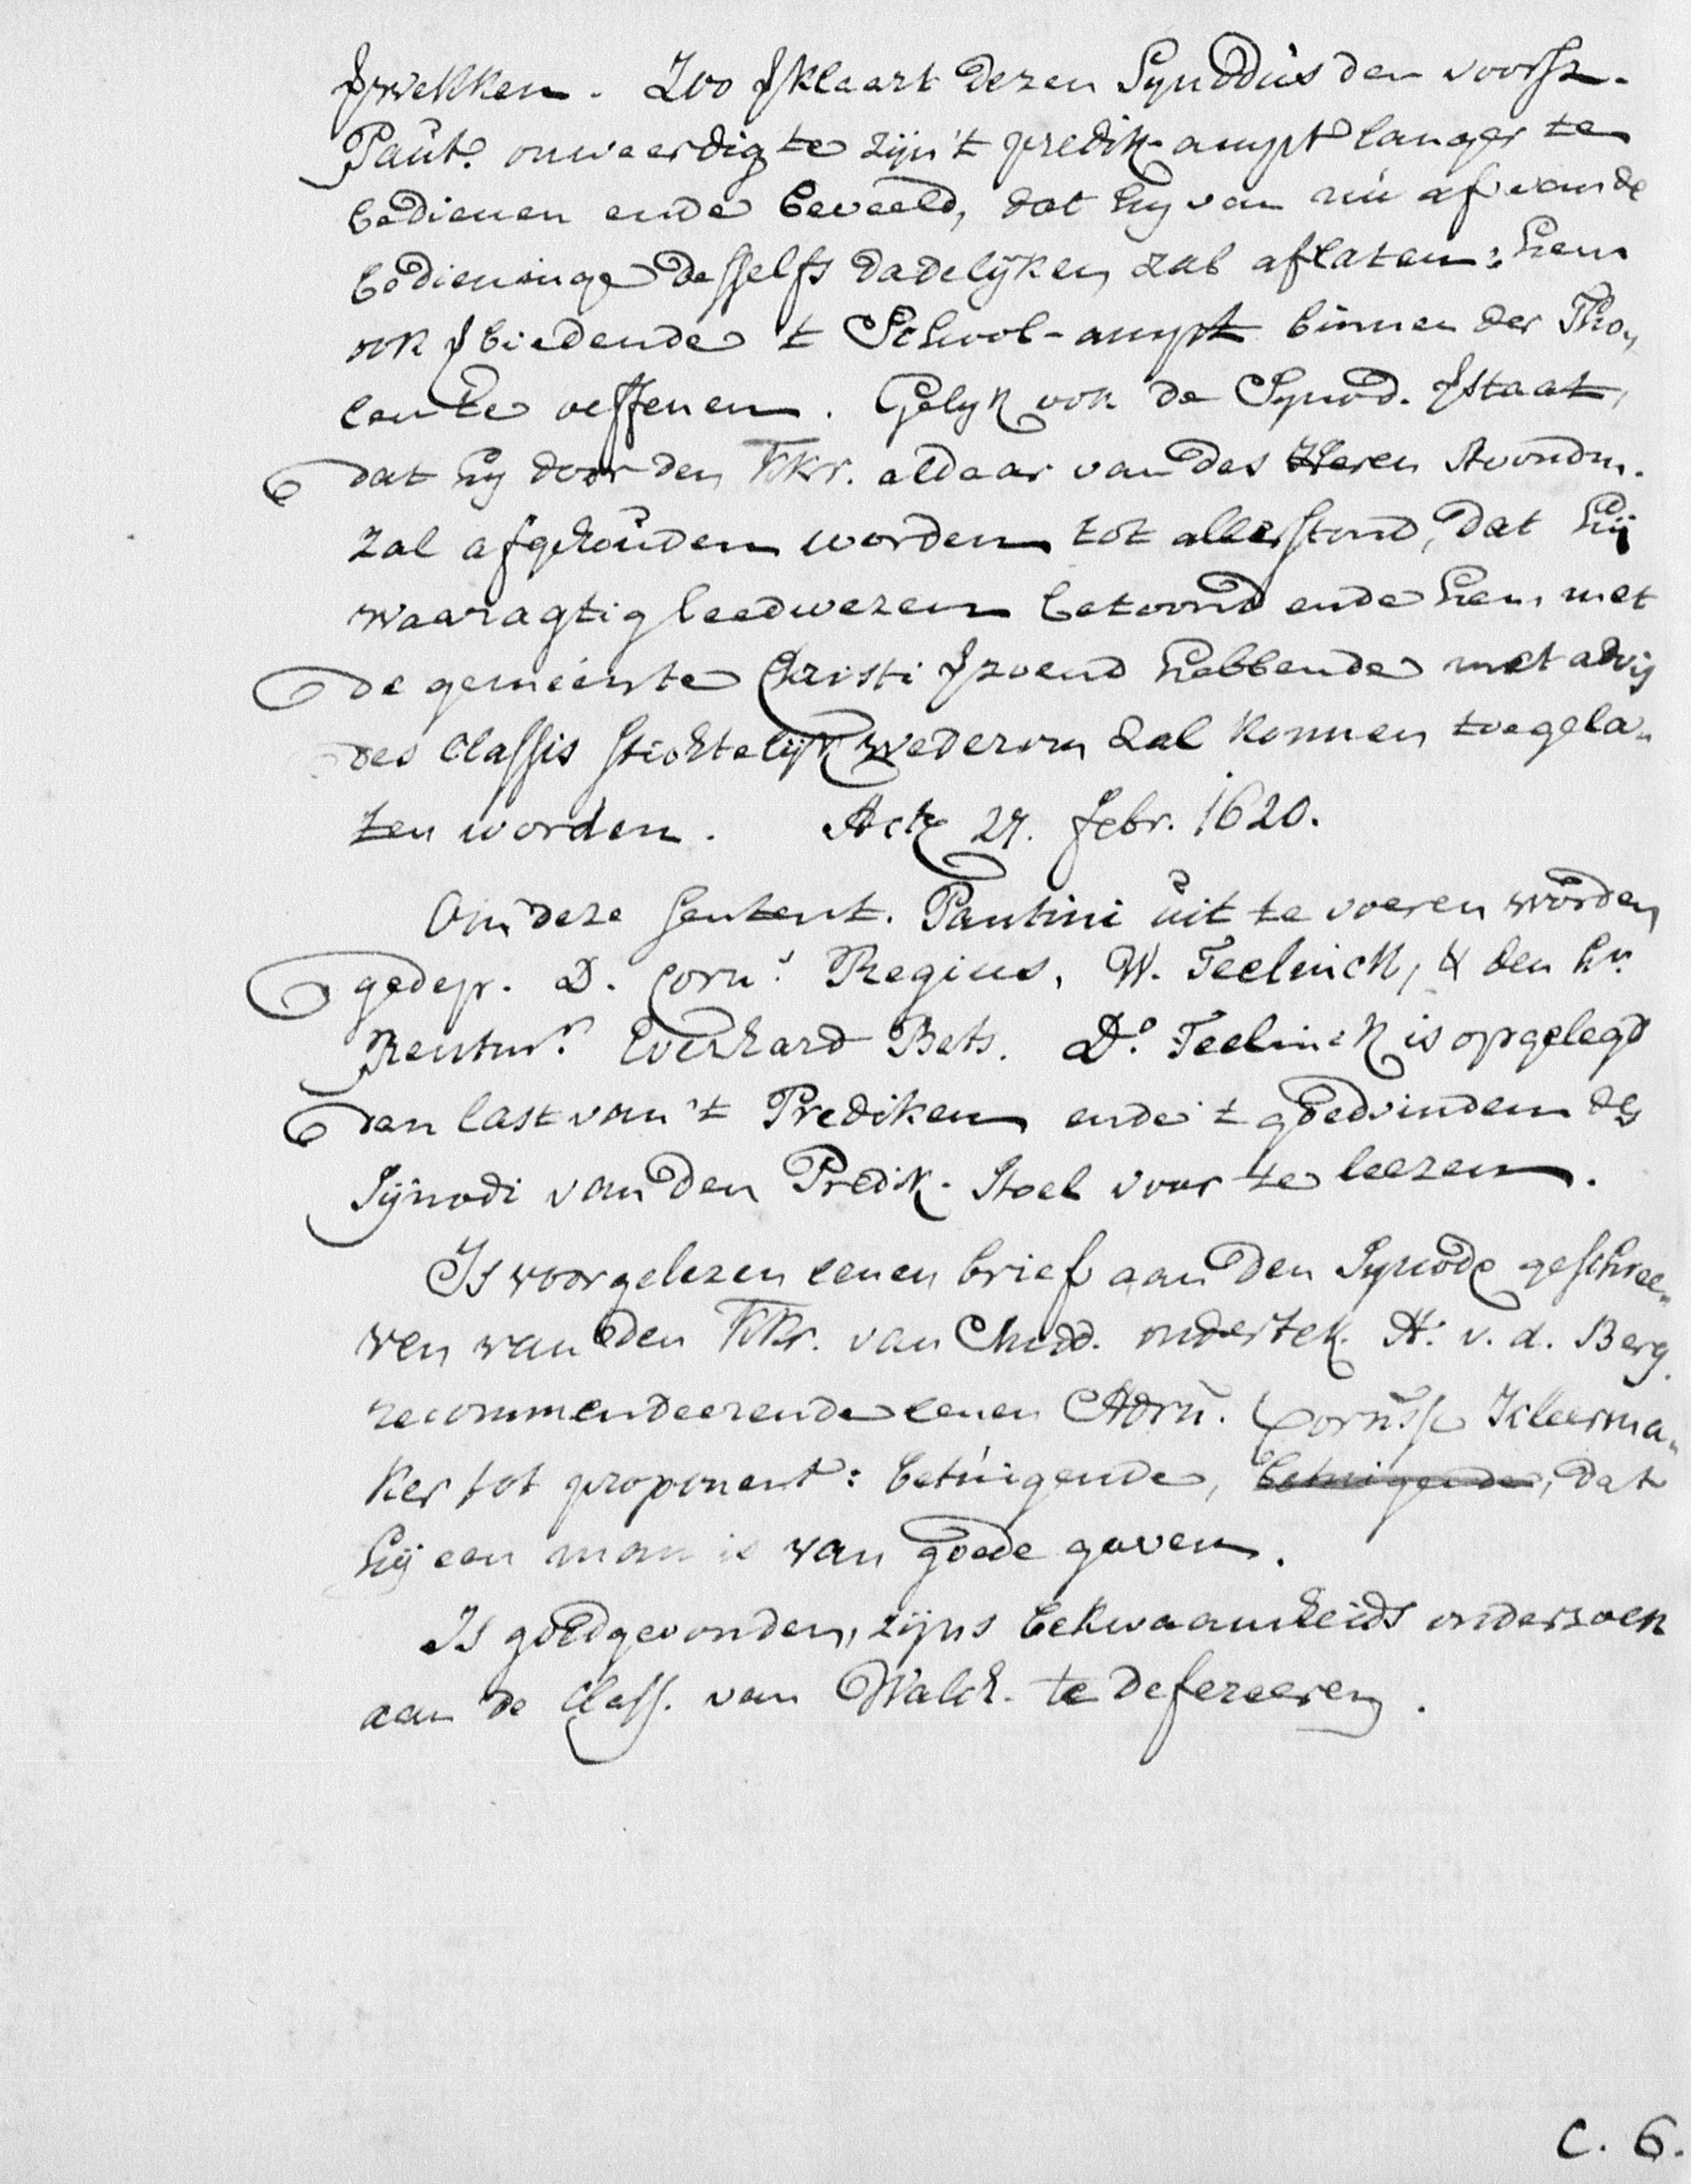 verwekken. Zoo verklaart dezen Synodus den voorsz.
Paut. onweerdig te zijn 't predik-ampt langer te
bedienen ende beveeld, dat hy van nu af van de
bedieninge desselfs dadelijken zal aflaten: hem
ook verbiedende 't School-ampt binnen der Tho„
len te oeffenen. Gelyk ook de Synod. verstaat,
dat hy door den KKr. aldaar van des Heren Avondm.
zal afgehouden worden tot aller stond, dat hij
waaragtig leedwezen betoond ende hem met
de gemeente Christi verzoend hebbende met advijs
des Classis stichtelijk wederom zal konnen toegela„
ten worden. Act. 27. Febr. 1620.
Om deze Sentent. Pautini uit te voeren worden
gedep. D. Corn.s Regius, W. Teelinck, & den Hr.
Rentmr. Everhard Bets. Do. Teelinck is opgelegd
den last van 't Prediken ende 't goedvinden des
Synodi van den Predik-stoel voor te leezen.
Is voorgelezen eenen brief aan den Synode geschree„
ven van den KKr. van ondertek. H. v. d. Berg.
recommendeerende eenen Adrn. Cornss. Kleerma„
ker tot proponent: betuigende, betuigende, dat
hij een man is van goede gaven.
Is goedgevonden, zijns bekwaamheids onderzoek
aan de Class. van Walch. te defereeren.
C. 6.